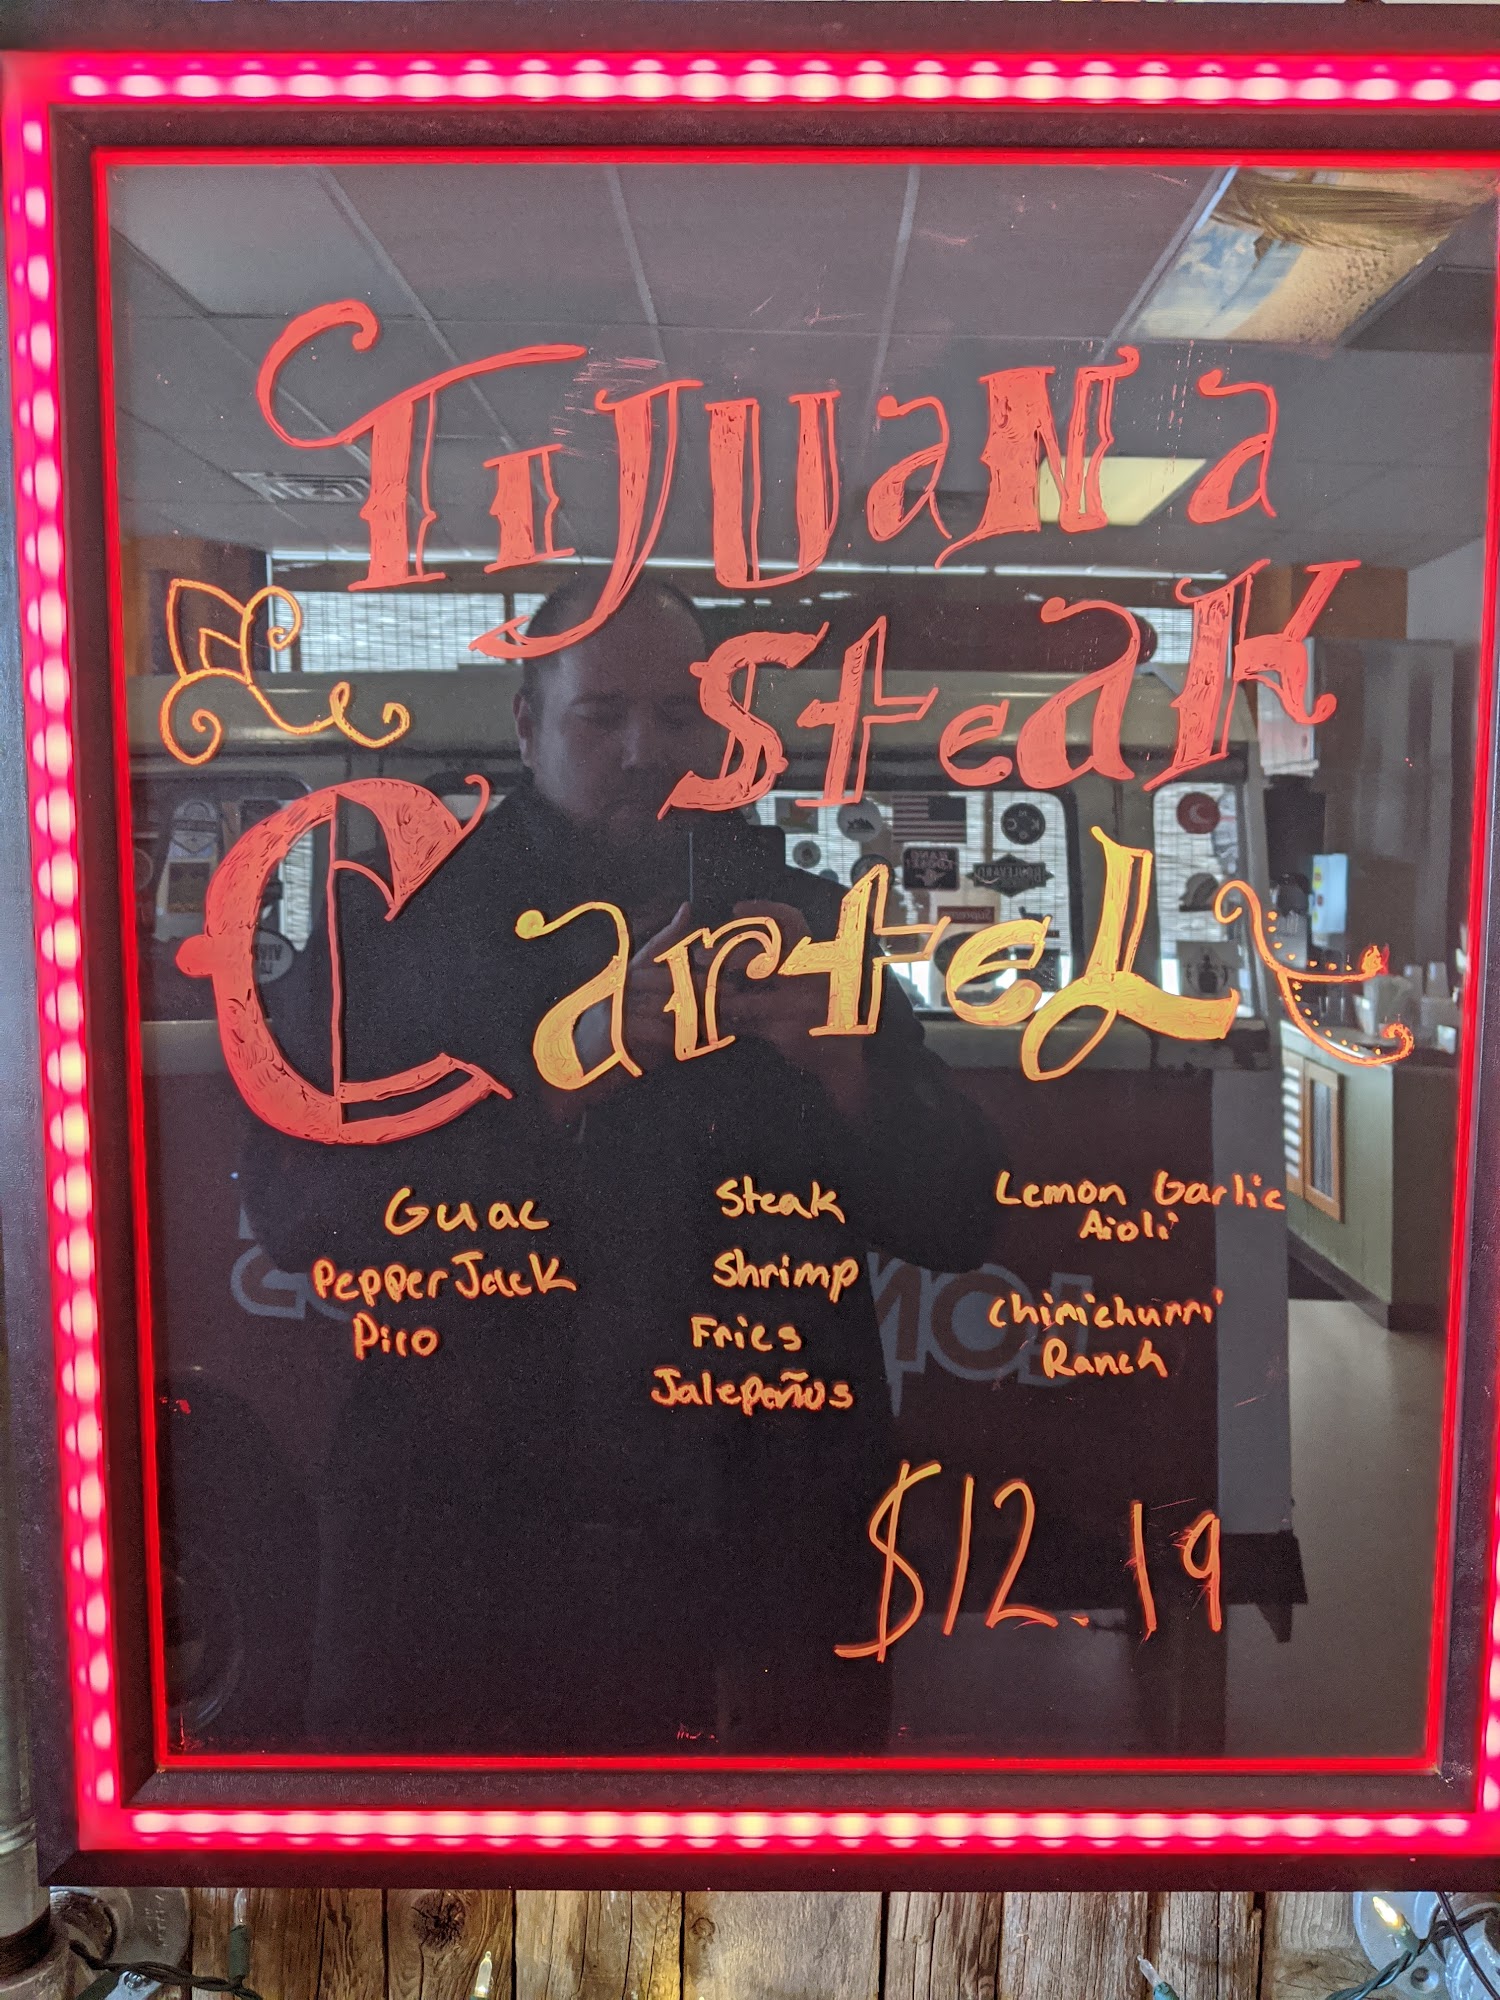 TiJUaNa
Steak
CarteL
Guac
Pepper Jack
Pico
Steak
Shrimp
Fries
Jalepeños
Lemon Garlic
Aioli
Chimichurri
Ranch
$12.19